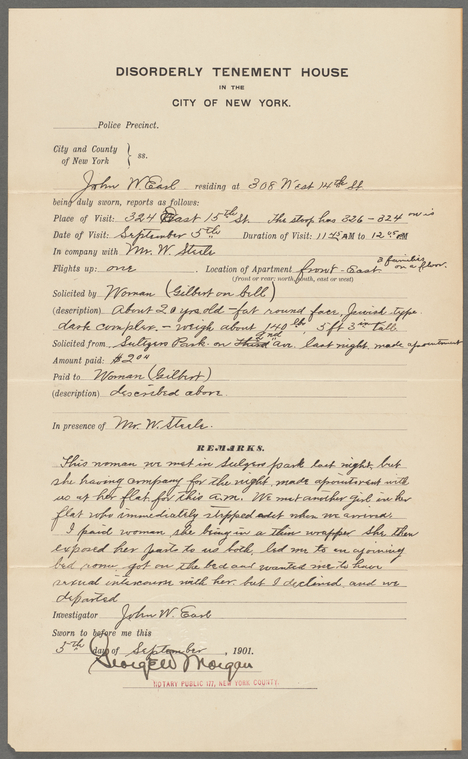 DISORDERLY TENEMENT HOUSE
IN THE
CITY OF NEW YORK.
Police Precinct.
City and County
of New York } ss.
John W. Earl residing at 308 West 14th St.
being duly sworn, reports as follows:
Place of Visit: 324 East 15th St. The stoop has 336-324 on it
Date of Visit: September 5th Duration of Visit: 11 45 AM to 12 05 PM
In company with Mr. W. Steele
Flights up: one Location of Apartment front - East 3 families on a floor.
(front or rear; north, south, east or west)
Solicited by Woman (Gilbert on bell)
(description) About 20 yrs old - fat round face, Jewish type
dark complex. - weigh about 140 lbs. 5 ft 3 in tall.
Solicited from Park on 2nd ave. last night, made apointment
Amount paid: $2 00
Paid to Woman (Gilbert)
(description) described above.
In presence of Mr. W. Steele.
REMARKS.
This woman we met in park last night, but
she having company for the night, made apointment with
us at her flat for this a.m. We met another girl in her
flat who immediately stepped out when we arrived.
I paid woman, she being in a thin wrapper she then
exposed her parts to us both, led me to an ajoining
bed room, got on the bed and wanted me to have
sexual intercourse with her, but I declined and we
departed
Investigator John W. Earl
Sworn to before me this
5th day of September, 1901.
George W Morgan
NOTARY PUBLIC 177, NEW YORK COUNTY.